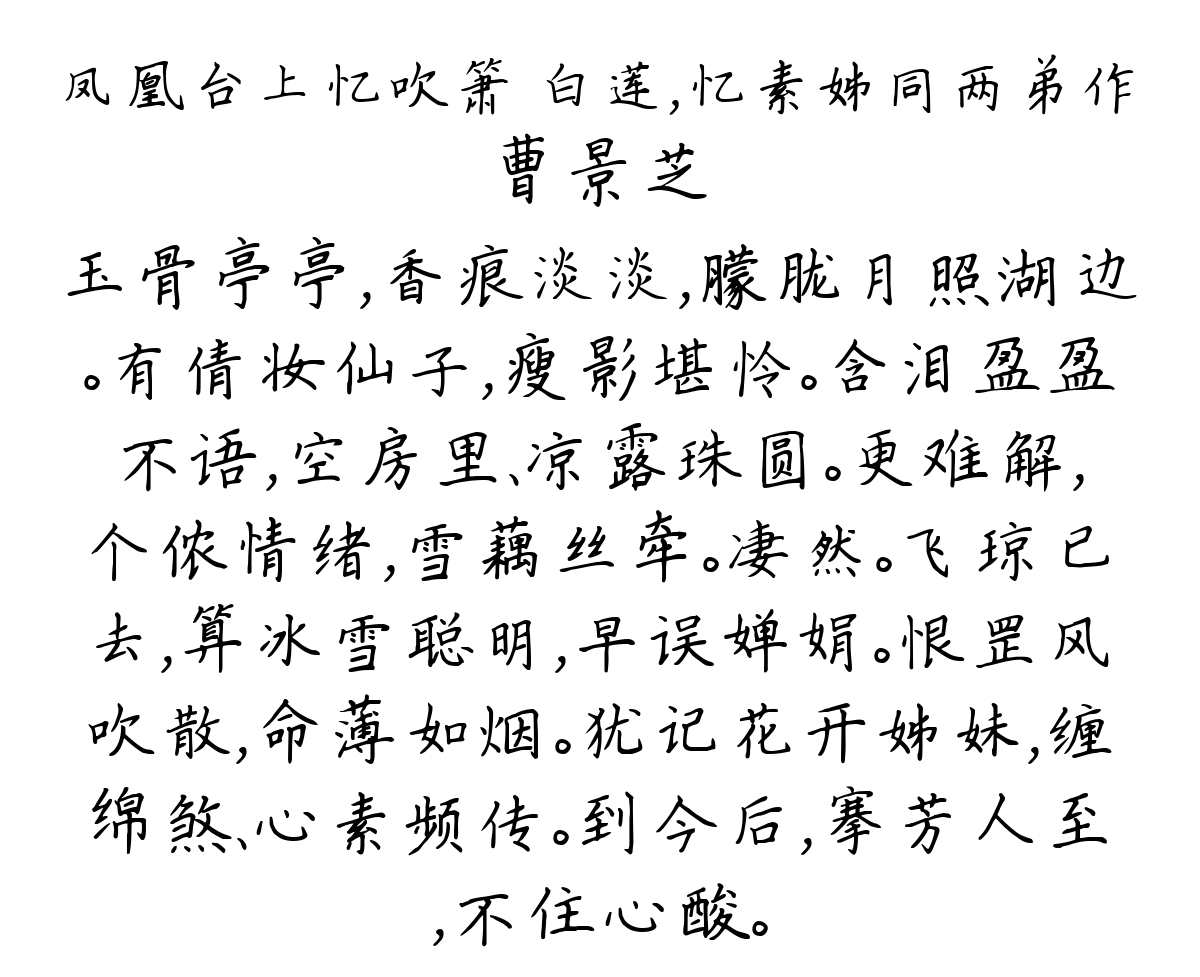 凤凰台上忆吹箫 白莲,忆素姊同两弟作
曹景芝
玉骨亭亭,香痕淡淡,朦胧月照湖边
。有倩妆仙子,瘦影堪怜。含泪盈盈
不语,空房里、凉露珠圆。更难解,
个侬情绪,雪藕丝牵。凄然。飞琼已
去,算冰雪聪明,早误婵娟。恨罡风
吹散,命薄如烟。犹记花开姊妹,缠
绵煞、心素频传。到今后,搴芳人至
,不住心酸。